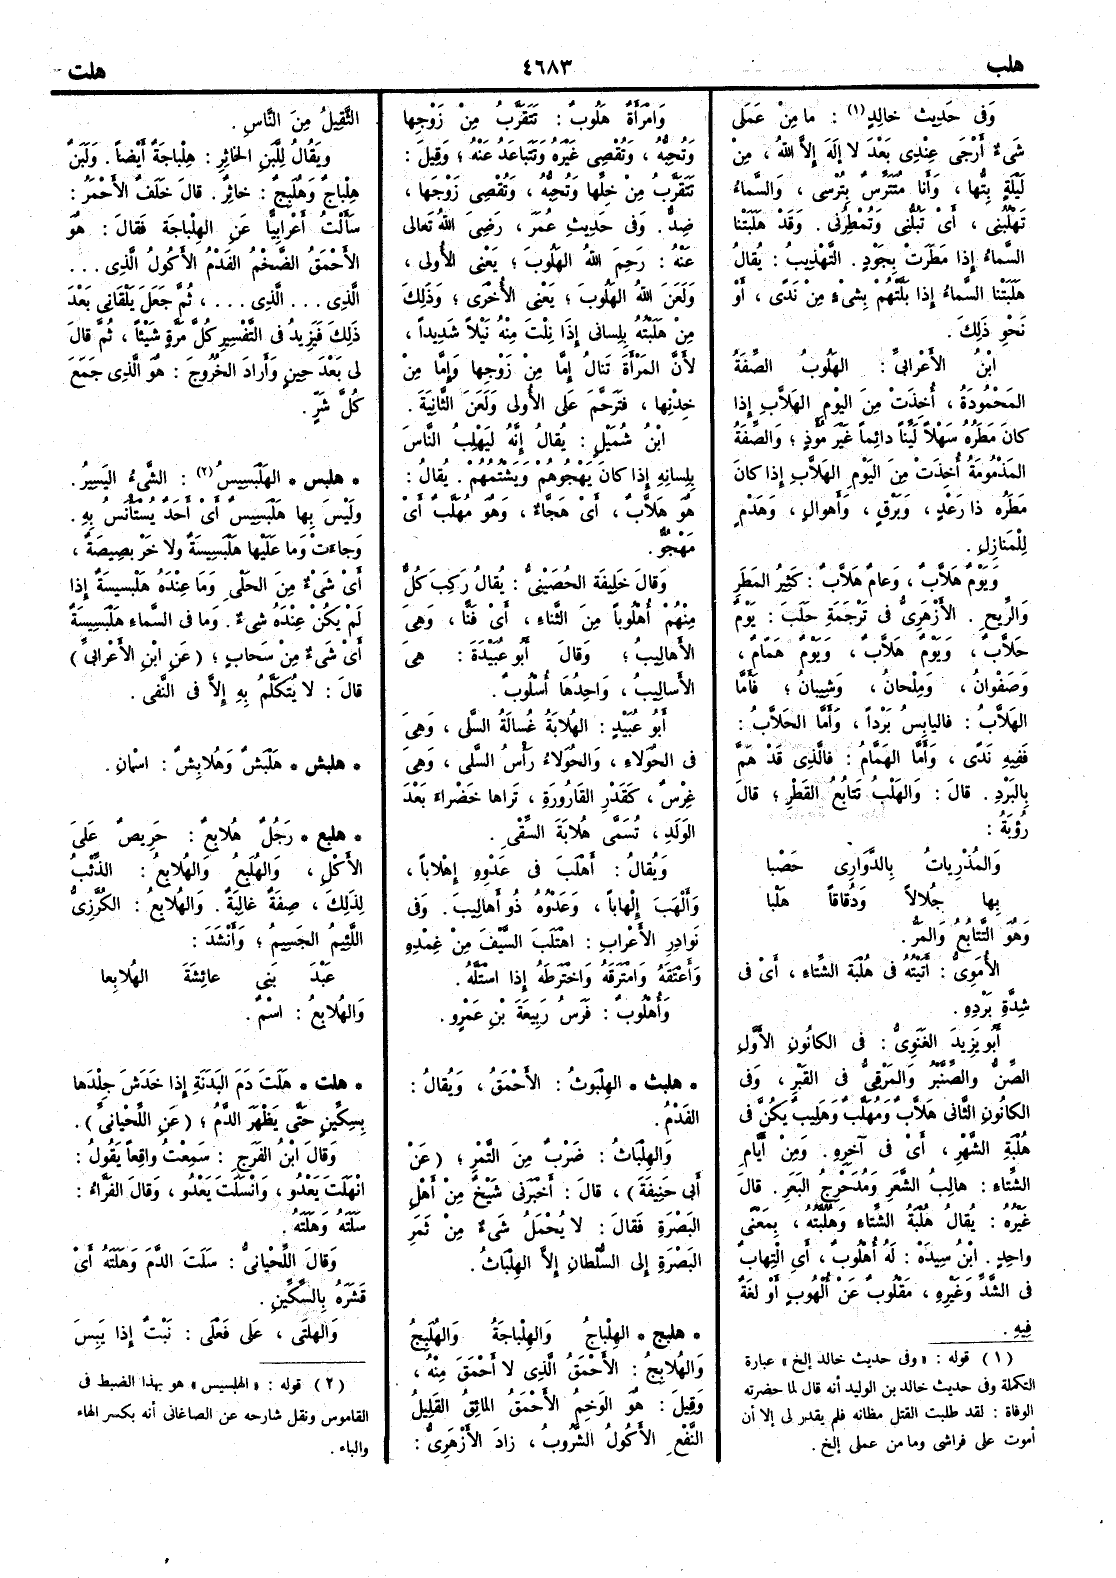 هلب
٤٦٨٣
هلت
وَفِى حَدِيثِ خالِدٍ (١) : ما مِنْ عَمَلِى
شَىْءٌ أَرْجَى عِنْدِى بَعْدَ لا إِلهَ إِلَّا اللهُ ، مِنْ
لَيْلَةٍ بِتُّها ، وَأَنا مُتَتَرِّسٌ بِتُرْسِى ، وَالسَّماءُ
تَهْلُبُنِى ، أَىْ تَبُلُّنِى وَتُمْطِرُنِى . وَقَدْ هَلَبَتْنا
السَّماءُ إِذا مَطَرَتْ بِجَوْدٍ . التَّهْذِيبُ : يُقالُ
هَلَبَتْنا السَّماءُ إِذا بَلَّتْهُمْ بِشَىْءٍ مِنْ نَدًى ، أَوْ
نَحْوِ ذَلِكَ .
ابْنُ الأَعْرابِىِّ : الهَلُوبُ الصِّفَةُ
المَحْمُودَةُ ، أُخِذَتْ مِنَ اليَوْمِ الهَلَّابِ إِذا
كانَ مَطَرُهُ سَهْلاً لَيِّناً دائِماً غَيْرَ مُؤْذٍ ؛ وَالصِّفَةُ
المَذْمُومَةُ أُخِذَتْ مِنَ اليَوْمِ الهَلَّابِ إِذا كانَ
مَطَرُهُ ذا رَعْدٍ ، وَبَرْقٍ ، وَأَهوالٍ ، وَهَدْمٍ
لِلْمَنازِلِ .
وَيَوْمٌ هَلَّابٌ ، وَعامٌ هَلَّابٌ : كَثِيرُ المَطَرِ
وَالرِّيحِ . الأَزْهَرِىُّ فِى تَرْجَمَةِ حَلَبَ : يَوْمٌ
حَلَّابٌ ، وَيَوْمٌ هَلَّابٌ ، وَيَوْمٌ هَمَّامٌ ،
وَصَفْوانُ ، وَمِلْحانُ ، وَشِيبانُ ؛ فَأَمَّا
الهَلَّابُ : فاليابِسُ بَرْداً ، وَأَمَّا الحَلَّابُ :
فَفِيهِ نَدًى ، وَأَمَّا الهَمَّامُ : فالَّذِى قَدْ هَمَّ
بِالبَرْدِ . قالَ : وَالهَلْبُ تَتابُعُ القَطْرِ ؛ قالَ
رُؤْبَةُ :
وَالمُذْرِياتُ بِالذَّوَارِى حَصْبا
بِها جُلالاً وَدُقاقاً هَلْبا
وَهُوَ التَّتابُعُ وَالمَرُّ .
الأُمَوِىُّ : أَتَيْتُهُ فِى هُلْبَةِ الشِّتاءِ ، أَىْ فِى
شِدَّةِ بَرْدِهِ .
أَبُو يَزِيدَ الغَنَوِىُّ : فِى الكانُونِ الأَوَّلِ
الصِّنُّ وَالصِّنَّبْرُ وَالمَرْقِىُّ فِى القَبْرِ ، وَفِى
الكانُونِ الثَّانِى هَلَّابٌ وَمُهَلَّبٌ وَهَلِيبٌ يَكُنَّ فِى
هُلْبَةِ الشَّهْرِ ، أَىْ فِى آخِرِهِ . وَمِنْ أَيَّامِ
الشِّتاءِ : هالِبُ الشَّعَرِ وَمُدَحْرِجُ البَعَرِ . قالَ
غَيْرُهُ : يُقالُ هُلْبَةُ الشِّتاءِ وَهُلُبَّتُهُ ، بِمَعْنًى
واحِدٍ . ابْنُ سِيدَهْ : لَهُ أُهْلُوبٌ ، أَىِ الْتِهابٌ
فِى الشَّدِّ وَغَيْرِهِ ، مَقْلُوبٌ عَنْ أُلْهُوبٍ أَوْ لُغَةٌ
فِيهِ .
(١) قوله : «وفى حديث خالد إلخ» عبارة
التكملة وفى حديث خالد بن الوليد أنه قال لما حضرته
الوفاة : لقد طلبت القتل مظانه فلم يقدر لى إلا أن
أموت على فراشى وما من عملى إلخ .
وَامْرَأَةٌ هَلُوبٌ : تَتَقَرَّبُ مِنْ زَوْجِها
وَتُحِبُّهُ ، وَتُقْصِى غَيْرَهُ وَتَتَباعَدُ عَنْهُ ؛ وَقِيلَ :
تَتَقَرَّبُ مِنْ خِلِّها وَتُحِبُّهُ ، وَتُقْصِى زَوْجَها ،
ضِدٌّ . وَفِى حَدِيثِ عُمَرَ ، رَضِىَ اللهُ تَعالى
عَنْهُ : رَحِمَ اللهُ الهَلُوبَ ؛ يَعْنِى الأُولى ،
وَلَعَنَ اللهُ الهَلُوبَ ؛ يَعْنِى الأُخْرَى ؛ وَذَلِكَ
مِنْ هَلَبْتُهُ بِلِسانِى إِذَا نِلْتَ مِنْهُ نَيْلاً شَدِيداً ،
لأَنَّ المَرْأَةَ تَنالُ إِمَّا مِنْ زَوْجِها وَإِمَّا مِنْ
خِدْنِها ، فَتَرَحَّمَ عَلَى الأُولى وَلَعَنَ الثَّانِيَةَ .
ابْنُ شُمَيْلٍ : يُقالُ إِنَّهُ لَيَهْلِبُ النَّاسَ
بِلِسانِهِ إِذا كانَ يَهْجُوهُمْ وَيَشْتُمُهُمْ . يُقالُ :
هُوَ هَلَّابٌ ، أَىْ هَجَّاءٌ ، وَهُوَ مُهَلَّبٌ أَىْ
مَهْجُوٌّ .
وَقالَ خَلِيفَةُ الحُصَيْنِىُّ : يُقالُ رَكِبَ كُلٌّ
مِنْهُمْ أُهْلُوباً مِنَ الثَّناءِ ، أَىْ فَنًّا ، وَهِىَ
الأَهالِيبُ ؛ وَقالَ أَبُو عُبَيْدَةَ : هِىَ
الأَسالِيبُ ، واحِدُها أُسْلُوبٌ .
أَبُو عُبَيْدٍ : الهُلابَةُ غُسالَةُ السَّلَى ، وَهِىَ
فِى الحُوَلاءِ ، وَالحُوَلاءُ رَأْسُ السَّلَى ، وَهِىَ
غِرْسٌ ، كَقَدْرِ القارُورَةِ ، تَراها خَضْراءَ بَعْدَ
الوَلَدِ ، تُسَمَّى هُلابَةَ السِّقْىِ .
وَيُقالُ : أَهْلَبَ فِى عَدْوِهِ إِهْلاباً ،
وَأَلْهَبَ إِلْهاباً ، وَعَدْوُهُ ذُو أَهالِيبَ . وَفِى
نَوادِرِ الأَعْرابِ : اهْتَلَبَ السَّيْفَ مِنْ غِمْدِهِ
وَأَعْتَقَهُ وَامْتَرَقَهُ وَاخْتَرَطَهُ إِذا اسْتَلَّهُ .
وَأُهْلُوبٌ : فَرَسُ رَبِيعَةَ بْنِ عَمْرٍو .
* هلبث * الهِلْبَوْثُ : الأَحْمَقُ ، وَيُقالُ :
الفَدْمُ .
وَالهِلْباثُ : ضَرْبٌ مِنَ التَّمْرِ ؛ (عَنْ
أَبِى حَنِيفَةَ) ، قالَ : أَخْبَرَنِى شَيْخٌ مِنْ أَهْلِ
البَصْرَةِ فَقالَ : لا يُحْمَلُ شَىْءٌ مِنْ ثَمَرِ
البَصْرَةِ إِلى السُّلْطانِ إِلَّا الهِلْباثُ .
* هلبج * الهِلْباجُ وَالهِلْباجَةُ وَالهُلَبِجُ
وَالهُلابِجُ : الأَحْمَقُ الَّذِى لا أَحْمَقَ مِنْهُ ،
وَقِيلَ : هُوَ الوَخِمُ الأَحْمَقُ المائِقُ القَلِيلُ
النَّفْعِ الأَكُولُ الشَّرُوبُ ، زادَ الأَزْهَرِىُّ :
الثَّقِيلُ مِنَ النَّاسِ .
وَيُقالُ لِلَّبَنِ الخاثِرِ : هِلْباجَةٌ أَيْضاً . وَلَبَنٌ
هِلْباجٌ وَهُلَبِجٌ : خاثِرٌ . قالَ خَلَفٌ الأَحْمَرُ :
سَأَلْتُ أَعْرابِيًّا عَنِ الهِلْباجَةِ فَقالَ : هُوَ
الأَحْمَقُ الضَّخْمُ الفَدْمُ الأَكُولُ الَّذِى . . .
الَّذِى . . . الَّذِى . . . ، ثُمَّ جَعَلَ يَلْقانِى بَعْدَ
ذَلِكَ فَيَزِيدُ فِى التَّفْسِيرِ كُلَّ مَرَّةٍ شَيْئاً ، ثُمَّ قالَ
لِى بَعْدَ حِينٍ وَأَرادَ الخُرُوجَ : هُوَ الَّذِى جَمَعَ
كُلَّ شَرٍّ .
* هلبس * الهَلْبَسِيسُ (٢) : الشَّىْءُ اليَسِيرُ .
وَلَيْسَ بِها هَلْبَسِيسٌ أَىْ أَحَدٌ يُسْتَأْنَسُ بِهِ .
وَجاءَتْ وَما عَلَيْها هَلْبَسِيسَةٌ ولا خَرْبَصِيصَةٌ ،
أَىْ شَىْءٌ مِنَ الحَلْىِ . وَما عِنْدَهُ هَلْبَسِيسَةٌ إِذا
لَمْ يَكُنْ عِنْدَهُ شَىْءٌ . وَما فِى السَّماءِ هَلْبَسِيسَةٌ
أَىْ شَىْءٌ مِنْ سَحابٍ ؛ (عَنِ ابْنِ الأَعْرابِىِّ)
قالَ : لا يُتَكَلَّمُ بِهِ إِلَّا فِى النَّفْىِ .
* هلبش * هَلْبَشٌ وَهُلابِشٌ : اسْمانِ .
* هلبع * رَجُلٌ هُلابِعٌ : حَرِيصٌ عَلَى
الأَكْلِ ، وَالهُلَبِعُ وَالهُلابِعُ : الذِّئْبُ
لِذَلِكَ ، صِفَةٌ غالِبَةٌ . وَالهُلابِعُ : الكُرَّزِىُّ
اللَّئِيمُ الجَسِيمُ ؛ وَأَنْشَدَ :
عَبْدَ بَنِى عائِشَةَ الهُلابِعا
وَالهُلابِعُ : اسْمٌ .
* هلت * هَلَتَ دَمَ البَدَنَةِ إِذا خَدَشَ جِلْدَها
بِسِكِّينٍ حَتَّى يَظْهَرَ الدَّمُ ؛ (عَنِ اللِّحْيانِىِّ) .
وَقالَ ابْنُ الفَرَجِ : سَمِعْتُ واقِعاً يَقُولُ :
انْهَلَتَ يَعْدُو ، وَانْسَلَتَ يَعْدُو ، وَقالَ الفَرَّاءُ :
سَلَتَهُ وَهَلَتَهُ .
وَقالَ اللِّحْيانِىُّ : سَلَتَ الدَّمَ وَهَلَتَهُ أَىْ
قَشَرَهُ بِالسِّكِّينِ .
وَالهَلْتَى ، عَلَى فَعْلَى : نَبْتٌ إِذا يَبِسَ
(٢) قوله : «الهلبسيس» هو بهذا الضبط فى
القاموس ونقل شارحه عن الصاغانى أنه بكسر الهاء
والباء .